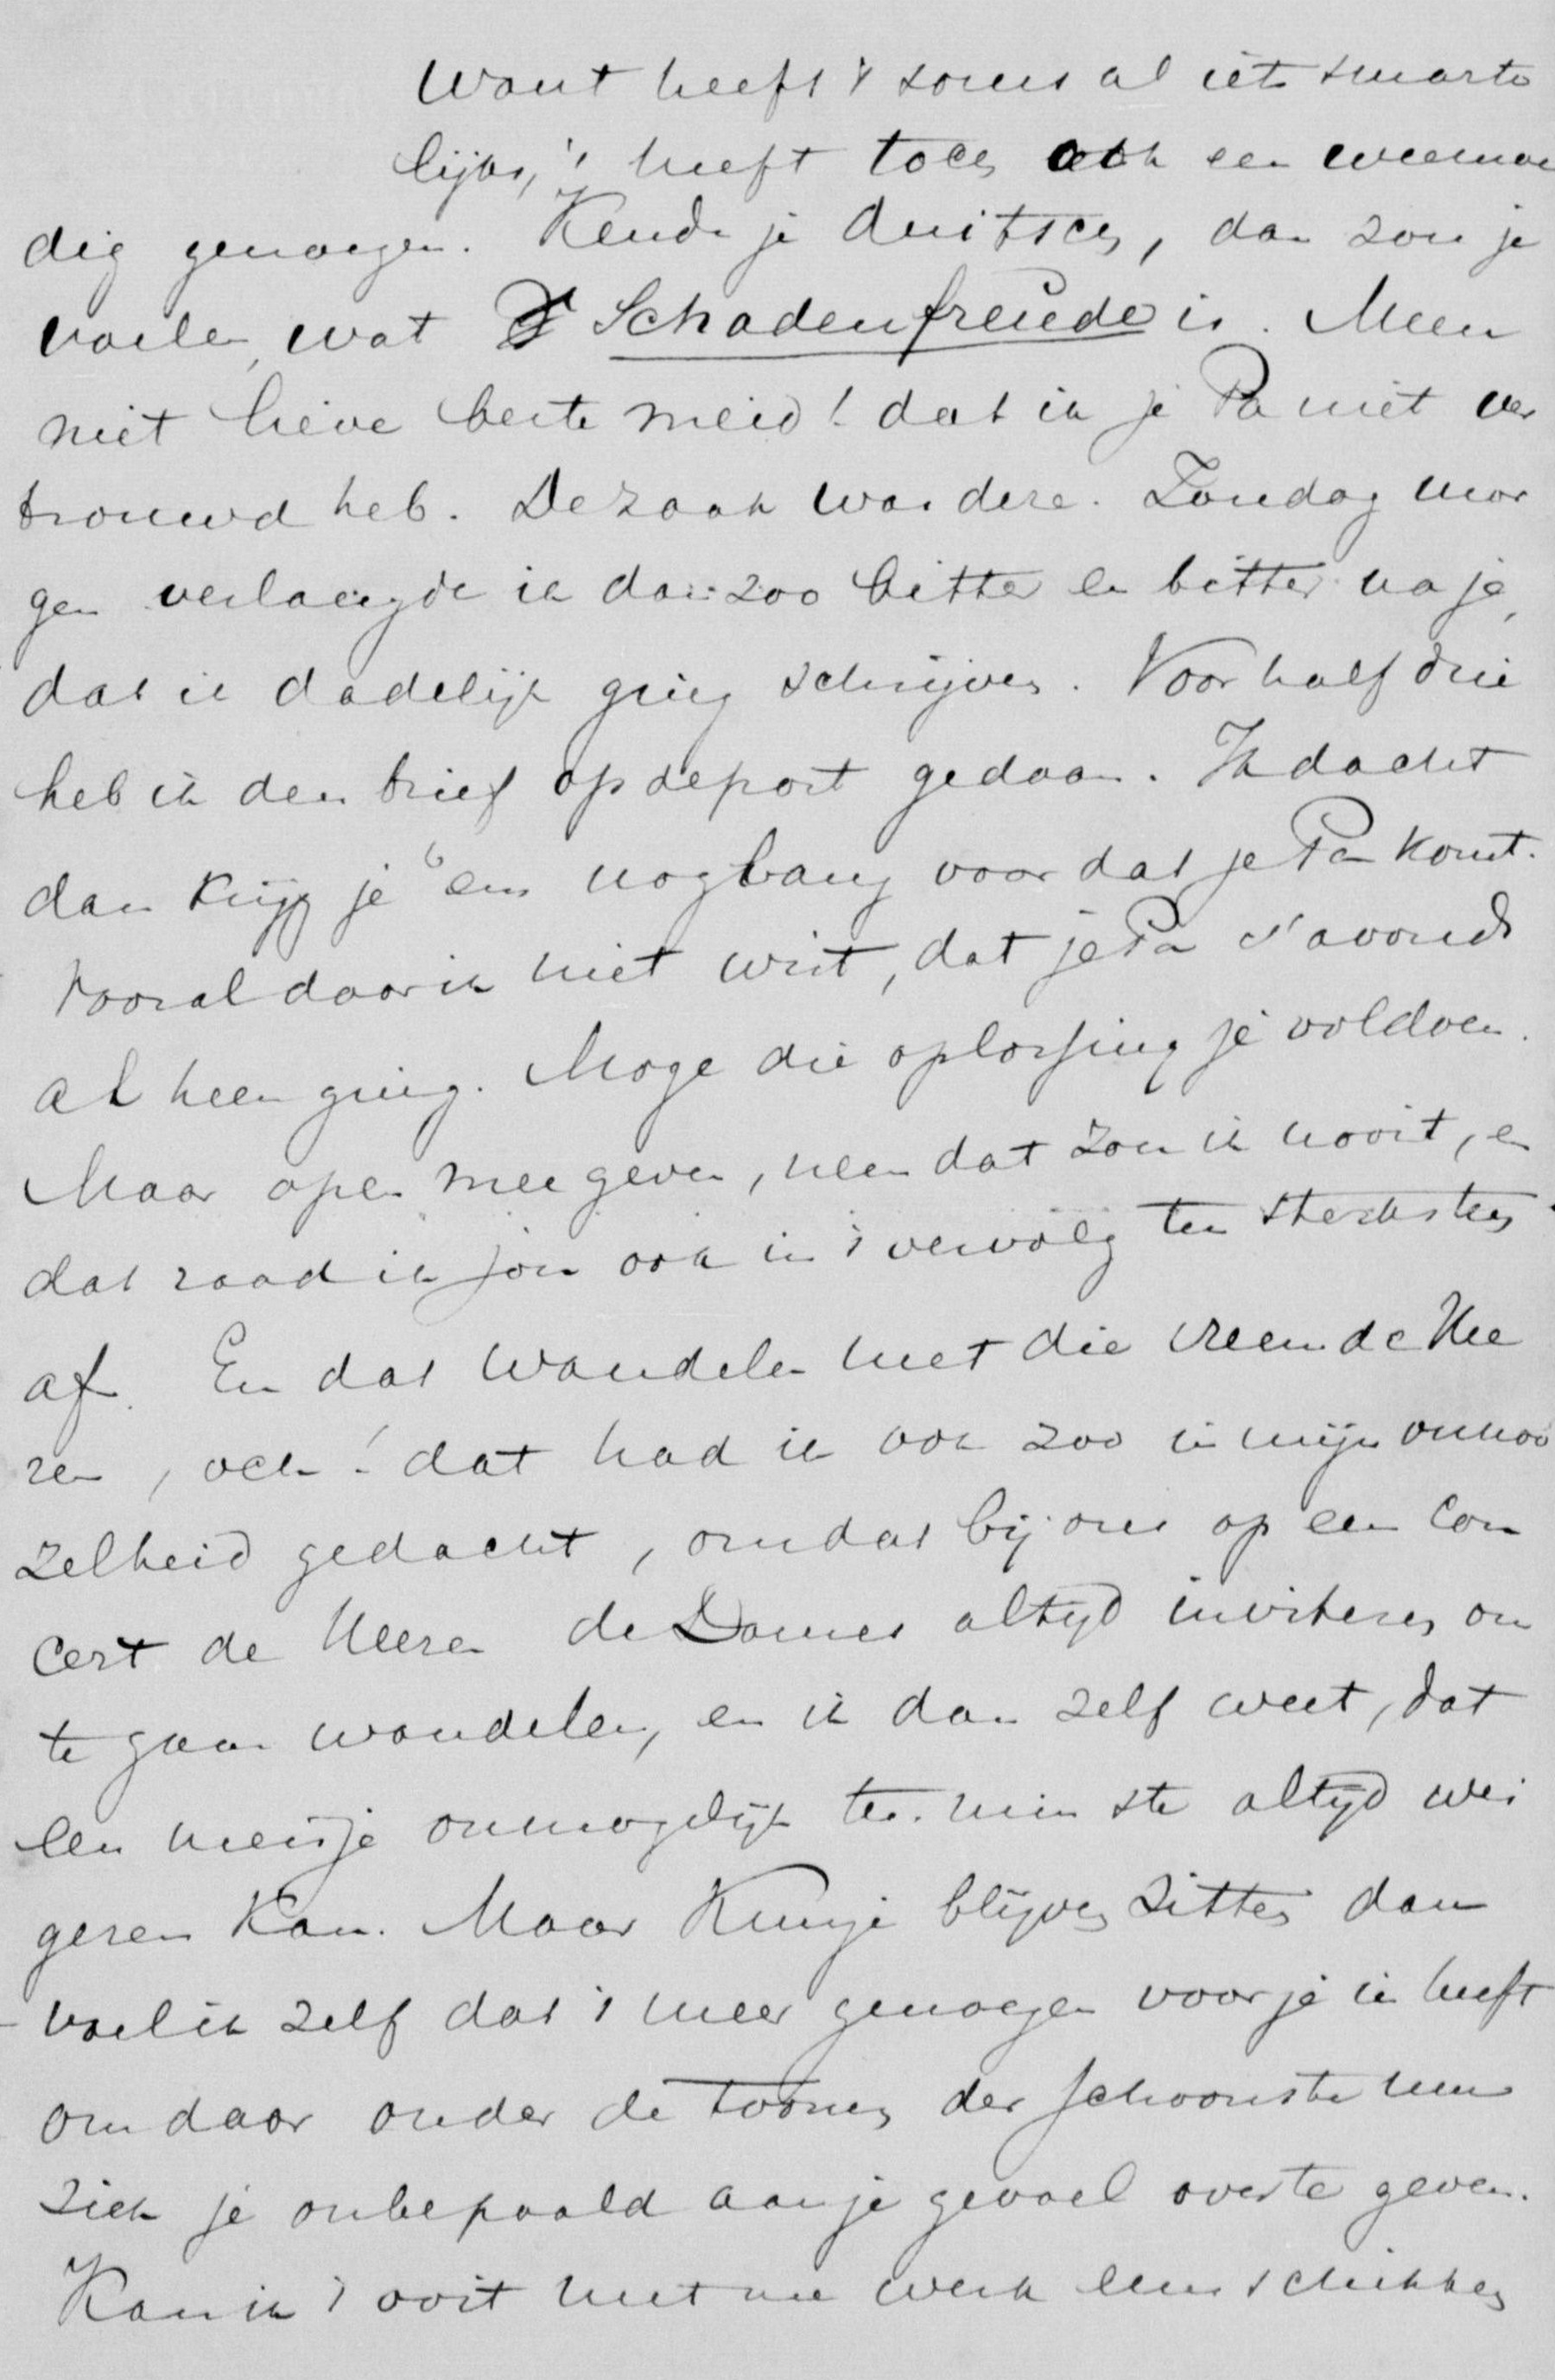 Want heeft 't soms al iets smarte
lijks, 't heeft toch ook een weemoe
dig genoegen. Kende je duitsch, dan zou je
voelen, wat Schadenfreude is. Meen
niet lieve beste meid! dat ik je Pa niet ver
trouwd heb. De zaak was deze. Zondag mor
gen verlangde ik dan zoo bitter en bitter na je,
dat ik dadelijk ging schrijven. Voor half drie
heb ik den brief op de post gedaan. Ik dacht
dan krijg je em nog lang voor dat je Pa komt.
vooral daar ik niet wist, dat je Pa s'avonds
al heen ging. Moge die oplossing je voldoen.
Maar open meegeven, neen dat zou ik nooit, en
dat raad ik jou ook in 't vervolg ten sterksten
af. En dat wandelen met die vreemde Hee
ren, och! dat had ik ook zoo in mijn onnoo
zelheid gedacht, omdat bij ons op een Con
cert de Heeren de Dames altijd inviteren om
te gaan wandelen, en ik dan zelf weet, dat
een meisje onmogelijk ten minste altijd wei
geren kan. Maar Kun je blijven zitten dan
voel ik zelf dat 't meer genoegen voor je in heeft
om daar onder de toonen der schoonste mu
ziek je onbepaald aan je gevoel over te geven.
Kan ik 't ooit met me werk eens schikken